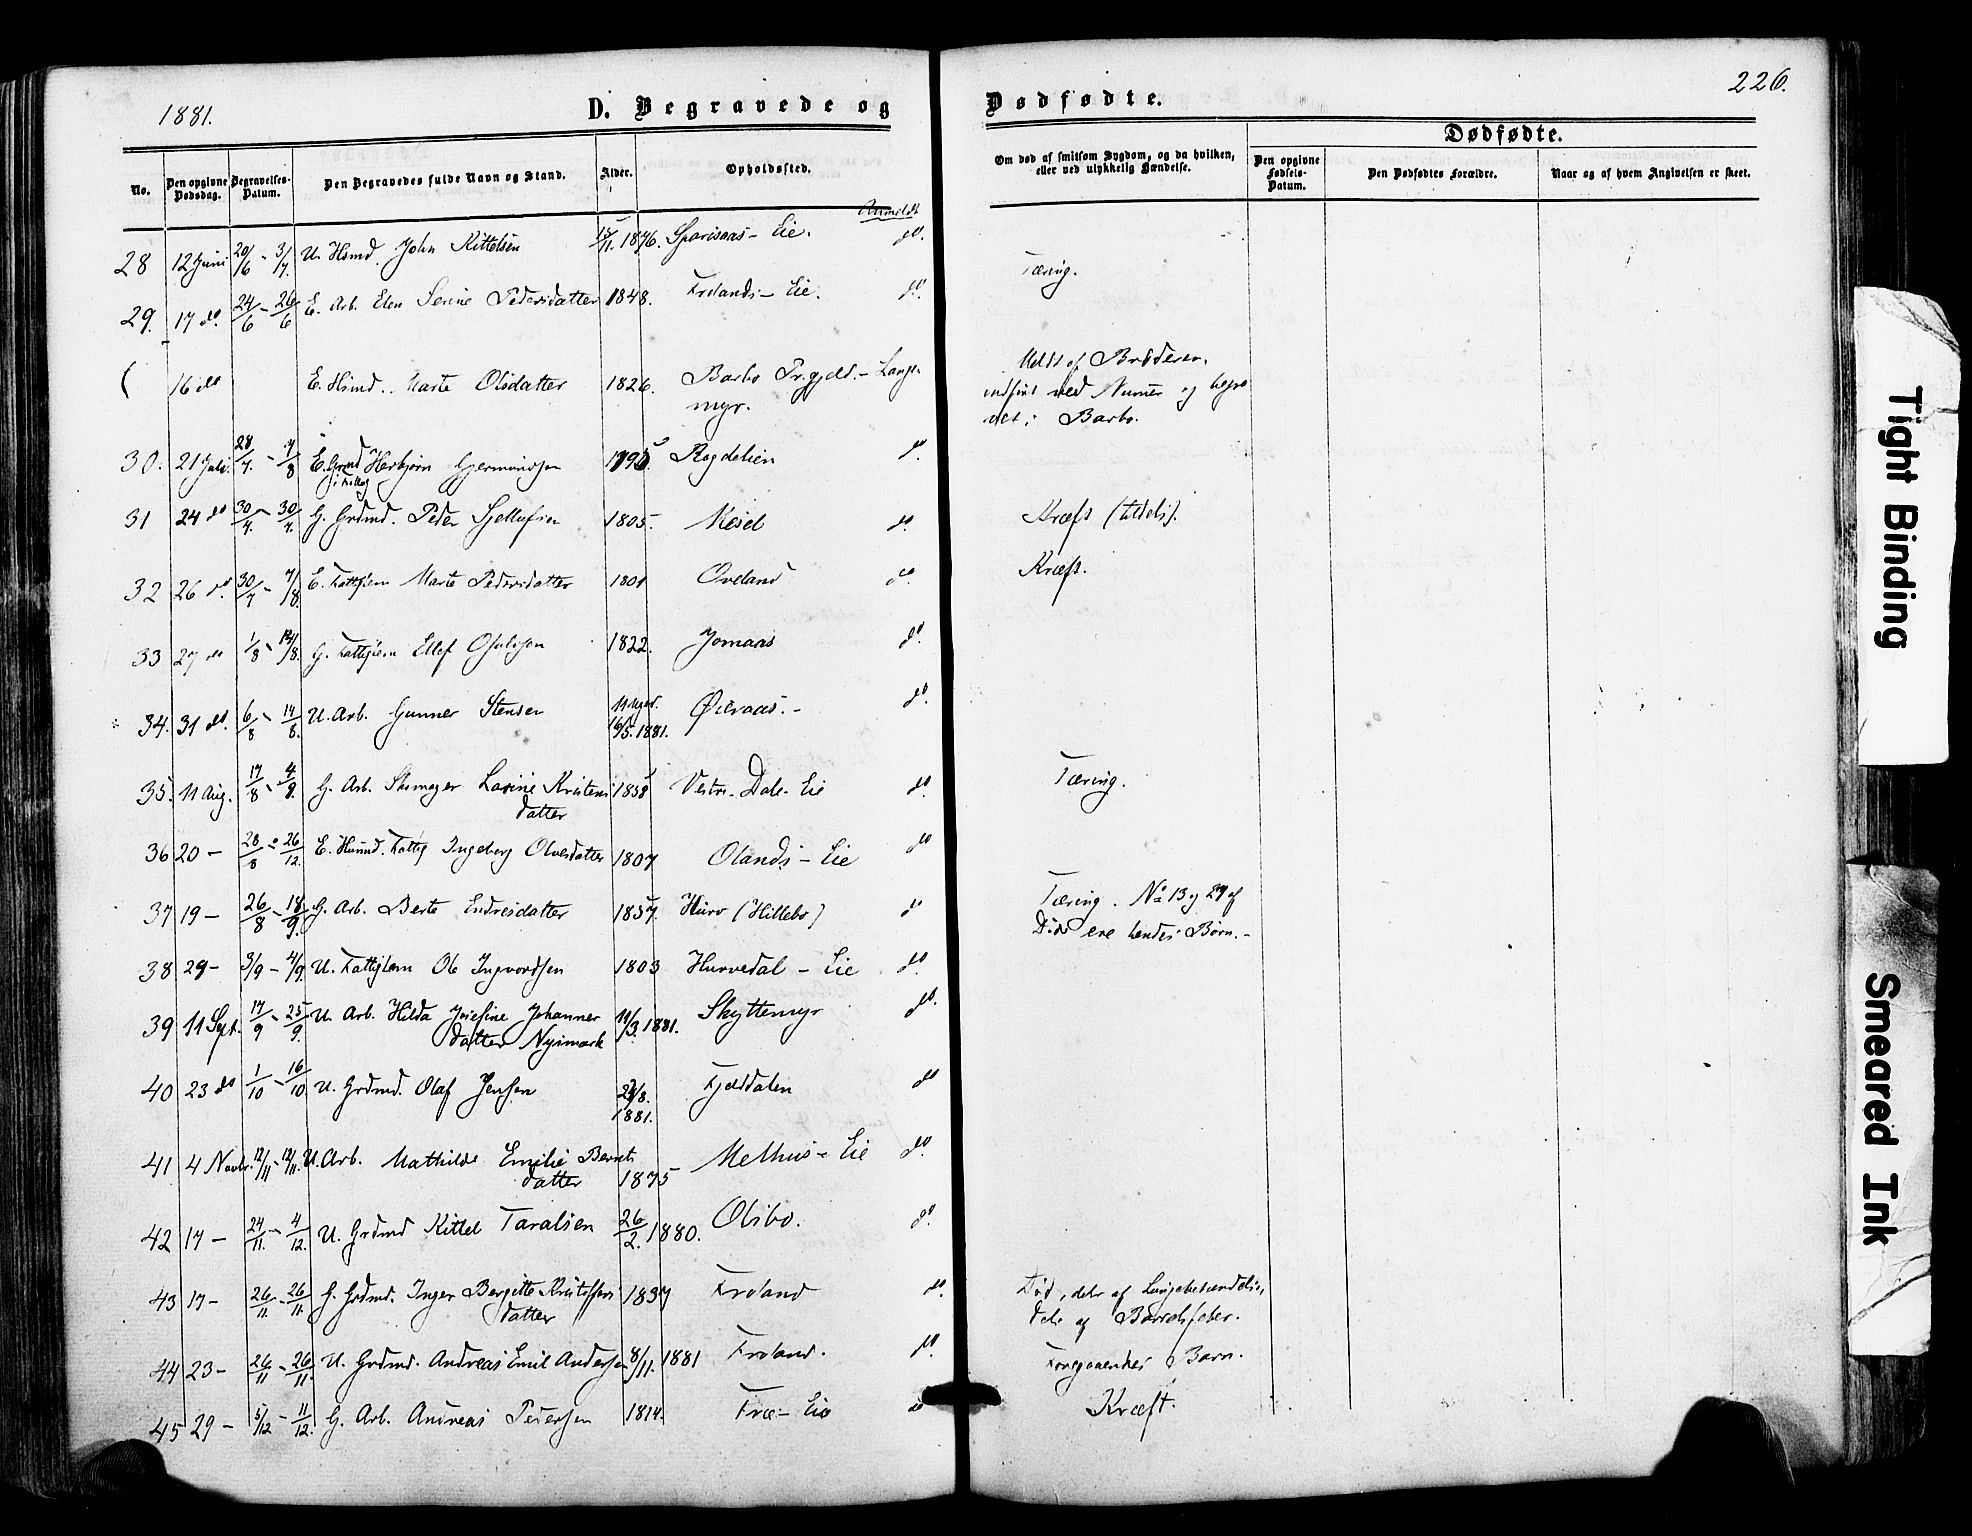 1881.
D. Begravede og Dødfødte.
226.
Dødfødte.
No.
Den opgivne Dødsdag.
Begravelses-Datum.
Den Begravedes fulde Navn og Stand.
Alder.
Opholdssted.
Om død af smitsom Sygdom, og da hvilken, eller ved ulykkelig Hændelse.
Den opgivne Fødsels-Datum.
Den Dødfødtes Forældre.
Naar og af hvem Angivelsen er skeet.
Anmeldt
28 12 Juni 20/6 - 3/7. U. Hsmd. John Kittelsen 11. 1876. Eie. do. Tæring.
29. 17 do. 24/6 - 26/6 E. Arb. Elen Serine Pedersdatter 1848. Frolands - Eie. do.
( 16 do E. Hsmd. Marte Olsdatter 1826. Barbo Prgjeld. - Lange-
myr. Meldt af Broderen,
indført ved Numer og begra
det i Barbo.
30. 21 Juli. 28/7. - 7/8 E. Grmd Herbjørn Gjermundsen Bogdelien do
31 24 do 30/7. - 30/7. G. Grdmd. Peder Sjellufsen 1805. Mesel do. Kræfs (tildels).
32 26 do. 30/7 - 7/8. E. Fattiglem Marte Pedersdatter 1801 Oveland do. Kræfs.
33 27 do 1/8 - 14/8. G. Fattiglem Ellef Osulvsen 1822. Jomaas do.
34. 31 do. 6/8 - 14/8. U. Arb. Gunner Stensen
16/5. 1881. do.
35. 11 Aug. 17/8 - 4/9. G. Arb. Lovine Kristens
datter 1858 Vestre - Dale - Eie do Tæring.
36 20 - 28/8 - 26/12. E. Husmd. Fattig Ingeborg Olvesdatter 1807 Olands - Eie do
37 19 - 26/8 - 18/9. G. Arb. Berte Endresdatter 1857. Hurv (Hillebo) do Tæring. No 13 og 27 af
Døde ere hendes Børn. -
38 29 - 3/9 - 4/9. U. Fattiglem Ole Ingvordsen 1803 Hurvedal - Eie do
39 11 Sept. 17/9 - 25/9. U. Arb. Hilda Josefine Johannes
datter Nysmark 14/3. 1881. Skyttemyr do.
40 23 do 1/10 - 16/10 U. Grdmd. Olaf Jensen 23/8.
1881. Fjelddalen do
41 4 Novbr. 12/11 - 12/11. U. Arb. Mathilde Emilie Bernts
datter 1875 Melhus - Eie do.
42 17 - 24/11. - 4/12. U. Grdmd Kittel Taralsen 26/2. 1880. Olsbo. do.
43 17 - 26/11. - 26/11. G. Grdmd. Inger Bergitte Kristoffers
datter 1837 Froland do. Død, dels af Lungebetændelse,
dels af Barselfeber.
44 23 - 26/11 - 26/11. U. Grdmd. Andreas Emil Andersen 8/11. 1881 Froland. do. Foregaaendes Barn.
45 29 - 5/12 - 11/12. G. Arb. Andreas Pedersen 1814. Fræ - Eie do Kræft.
Tight Binding
Smeared Ink